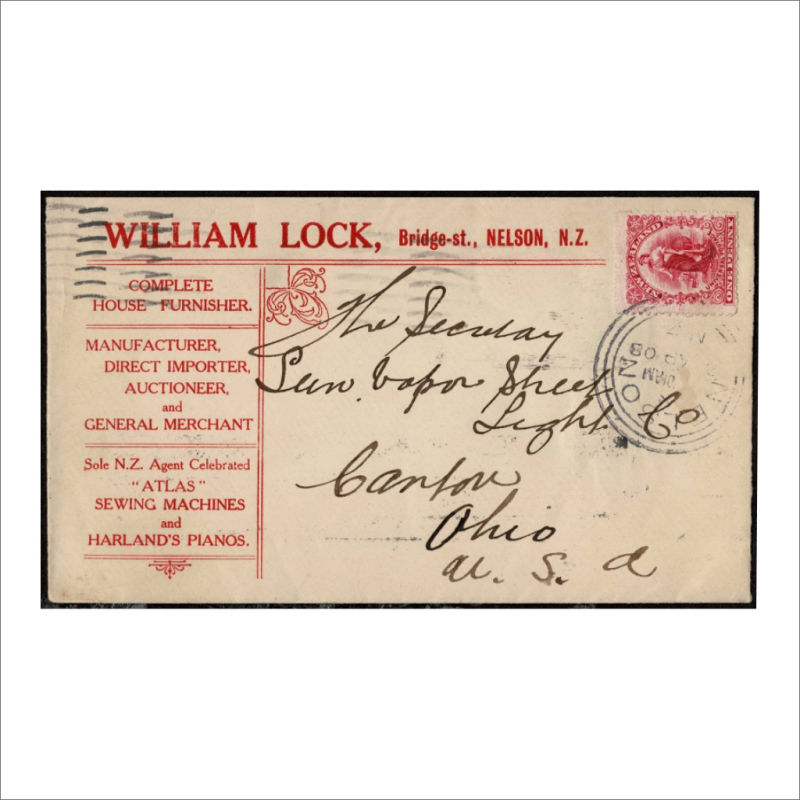 WILLIAM LOCK, Bridge-st., NELSON, N.Z.
COMPLETE
HOUSE FURNISHER.
MANUFACTURER,
DIRECT IMPORTER,
AUCTIONEER,
and
GENERAL MERCHANT
Sole N.Z. Agent Celebrated
"ATLAS"
SEWING MACHINES
and
HARLAND'S PIANOS.
The Secretay
Sun Vapor Street
Light Co
Canton
Ohio
U. S. A